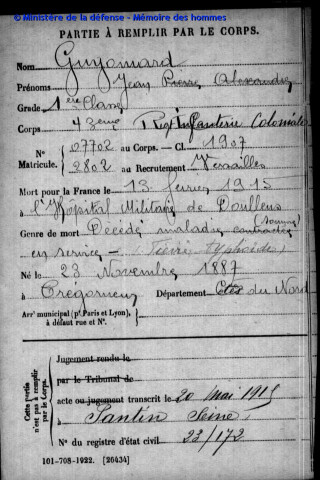 © Ministère de la défense - Mémoire des hommes
PARTIE À REMPLIR PAR LE CORPS.
Nom Guyomard
Prénoms Jean Pierre Alexandre
Grade 1ère Classe
Corps 43eme Reg Infanterie Coloniale
N° 07702 au Corps. — Cl. 1907
Matricule. 2802 au Recrutement Versailles
Mort pour la France le 13 février 1915
à l'Hôpital Militaire de Doullens
Genre de mort Décédé maladie contractée
en service - Fièvre typhoïde
Né le 23 Novembre 1887
à Trégomeur Département Côtes du Nord
Arrt municipal (pr Paris et Lyon),
à défaut rue et N°.
Cette partie n'est pas à remplir par le Corps.
Jugement rendu le
par le Tribunal de
acte ou jugement transcrit le 20 mai 1915
à Pantin Seine
N° du registre d'état civil 23/172
101-708-1922. [26434]